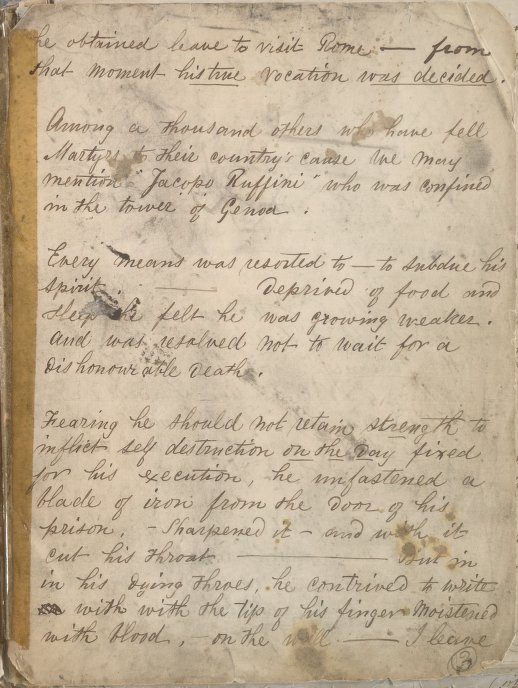 he obtained leave to visit Rome — from
that moment his true vocation was decided.
Among a thousand others who have fell
Martyrs to their country's cause we may
mention "Jacopo Ruffini" who was confined
in the tower of Genoa.
Every means was resorted to — to subdue his
spirit. — Deprived of food and
sleep he felt he was growing weaker.
and was resolved not to wait for a
dishonourable death.
Fearing he should not retain strength to
inflict self destruction on the day fixed
for his execution, he unfastened a
blade of iron from the door of his
prison, - sharpened it - and with it
cut his throat — But in
in his dying throes, he contrived to write
with with the tip of his finger moistened
with blood, - on the wall — I leave
3